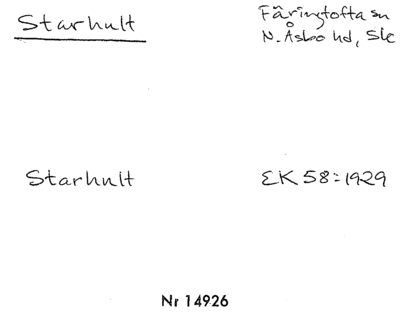 Starhult
Färingtofta sn
N. Åsbo hd, Sk
Starhult
EK 58:1929
Nr 14926